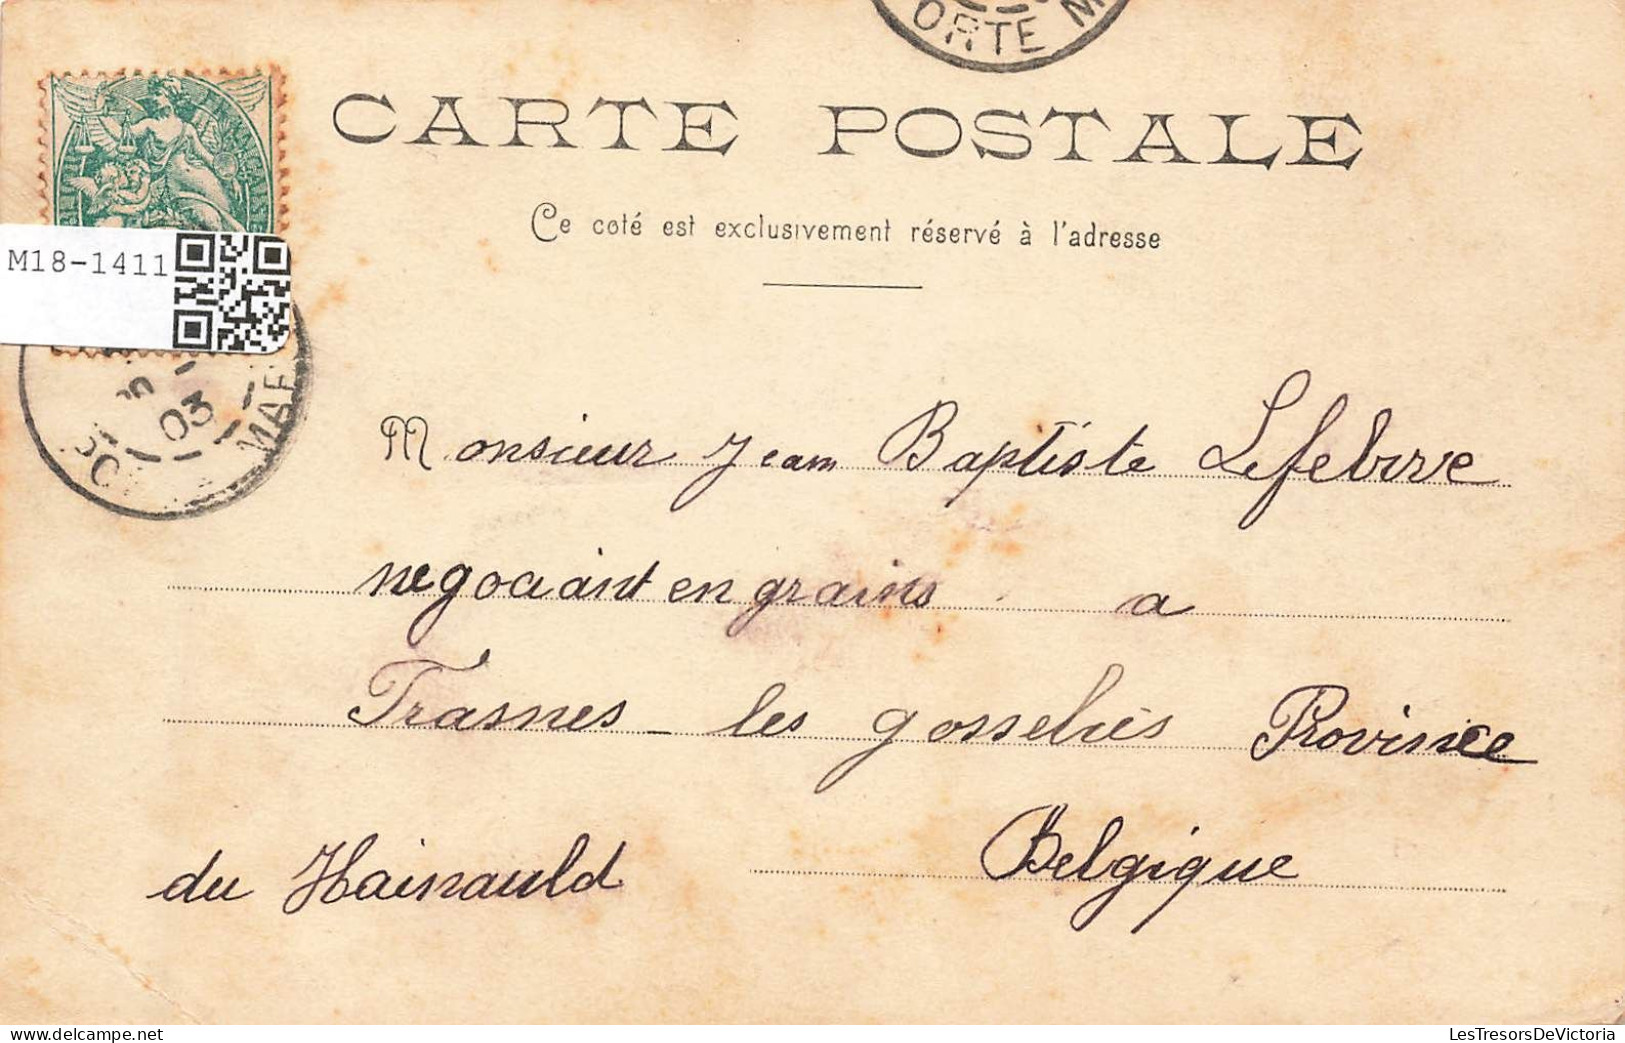 ORTE M
CARTE POSTALE
Ce coté est exclusivement réservé à l'adresse
M18-1411
03
MAR
Monsieur Jean Baptiste Lefebvre
negociant en grains a
Frasnes - les gosselies Province
du Hainauld Belgique
LesTresorsDeVictoria